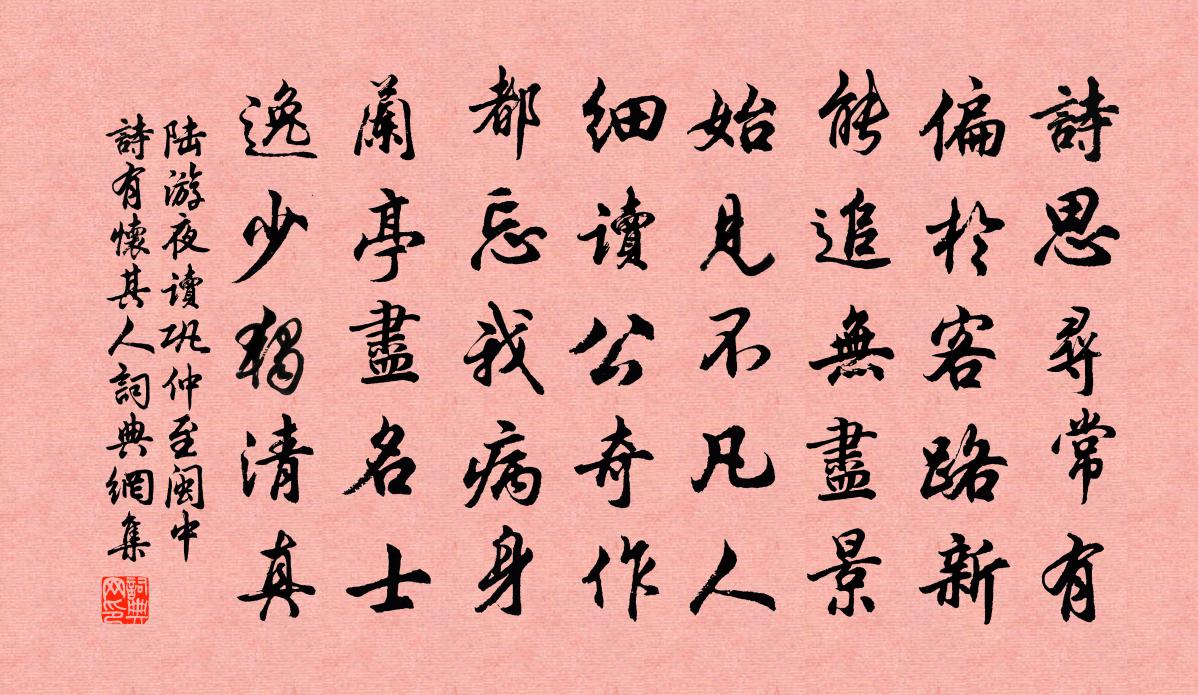 詩思尋常有
偏於客路新
能追無盡景
始見不凡人
細讀公奇作
都忘我病身
蘭亭盡名士
逸少獨清真
陆游夜讀巩仲至闽中
詩有懷其人詞典網集
詞典
网印